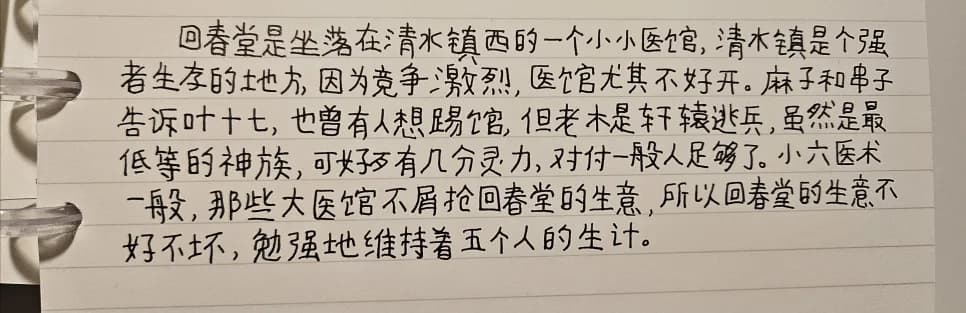 回春堂是坐落在清水镇西的一个小小医馆,清水镇是个强
者生存的地方,因为竞争激烈,医馆尤其不好开。麻子和串子
告诉叶十七,也曾有人想踢馆,但老木是轩辕逃兵,虽然是最
低等的神族,可好歹有几分灵力,对付一般人足够了。小六医术
一般,那些大医馆不屑抢回春堂的生意,所以回春堂的生意不
好不坏,勉强地维持着五个人的生计。